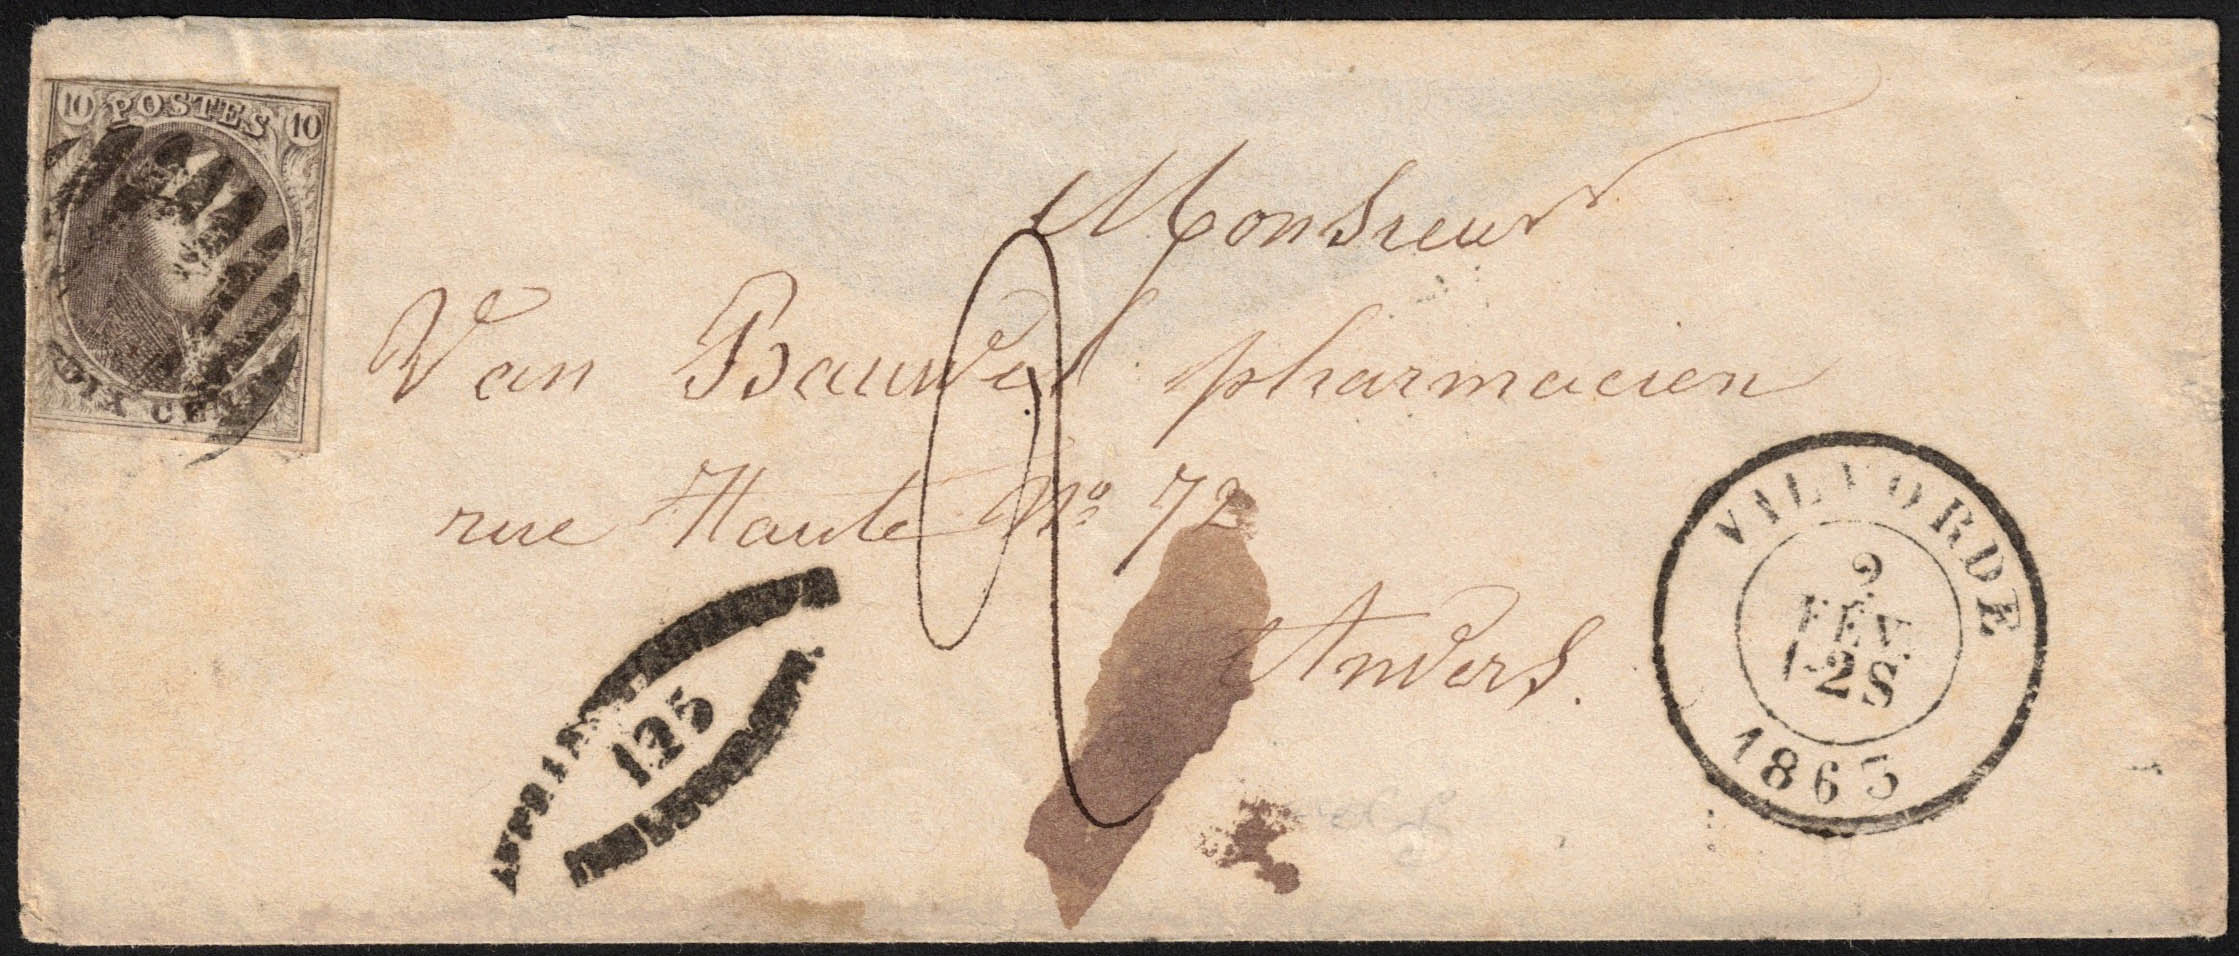 10 POSTES 10
DIX CEN
Monsieur
Van Bauwel pharmacien
rue Haute No 72
Anvers.
VILVORDE
2
FEV.
1-2S
1863